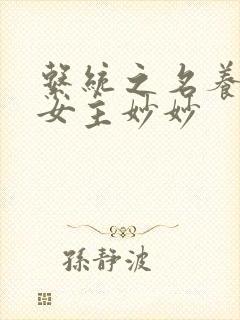 繫統之名養
女主妙妙
孫靜波